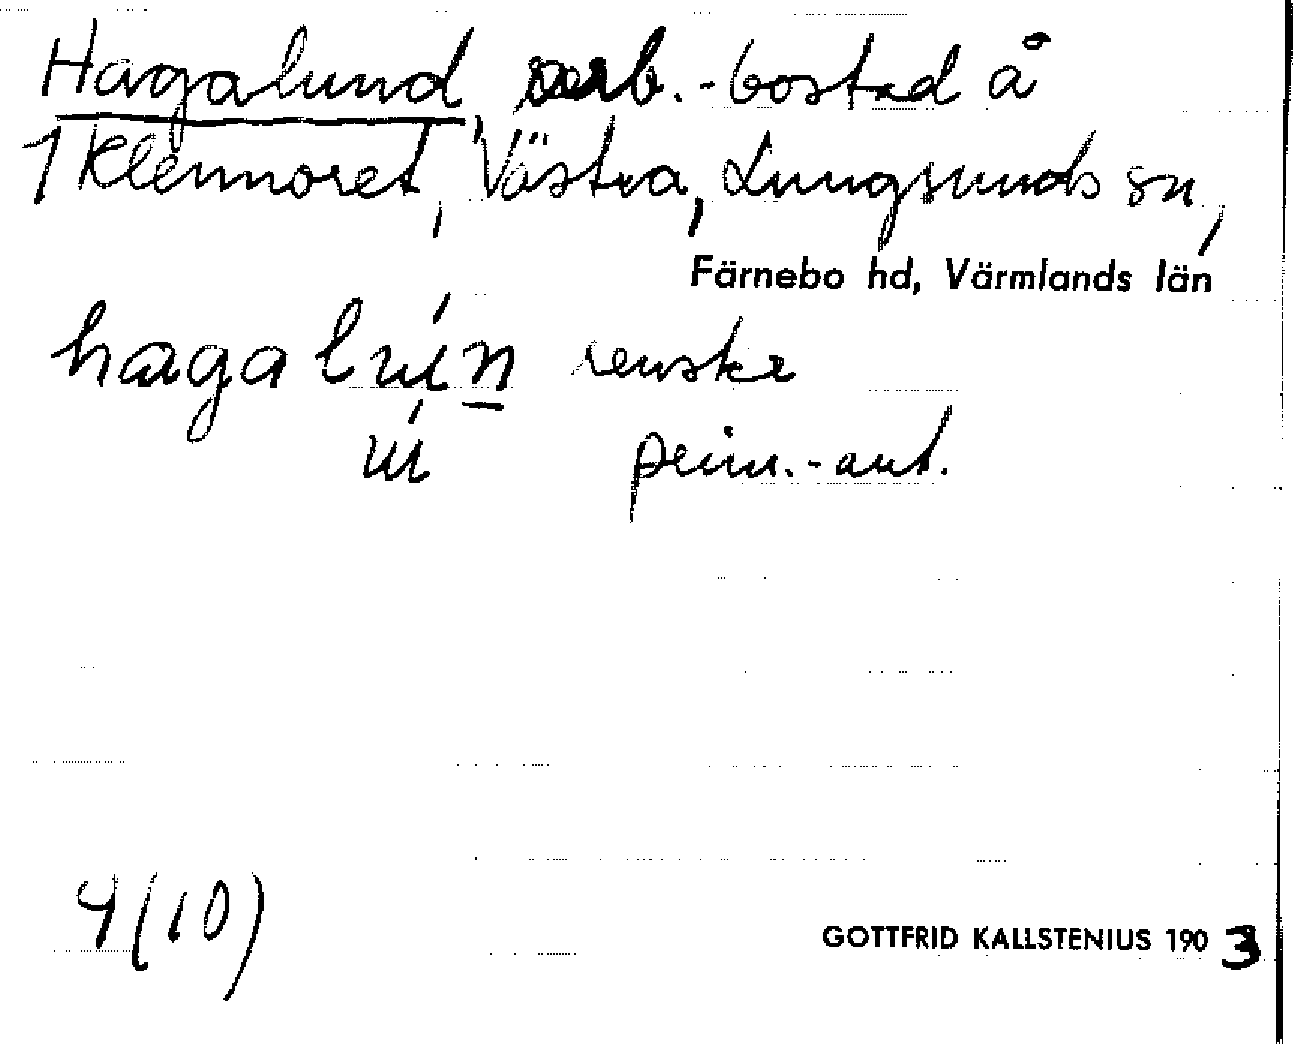 Hagalund, arb.-bostad å
1 Klenmoret, Västra, Lungsunds sn,
Färnebo hd, Värmlands län
hagalún renskr
ú prim.-ant.
4(10)
GOTTFRID KALLSTENIUS 1903